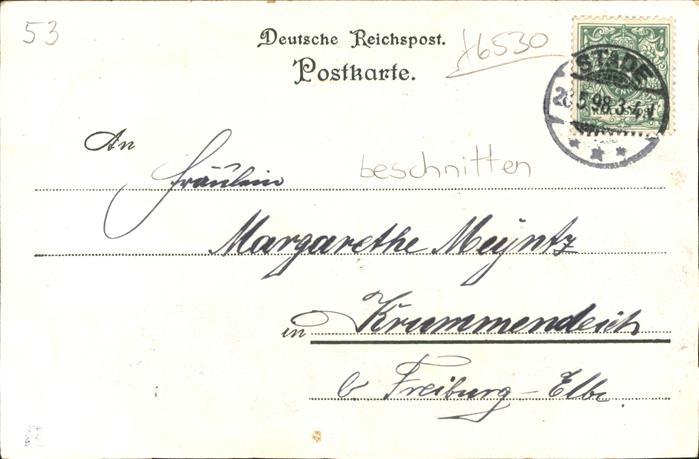 53
Deutsche Reichspost.
Postkarte.
16530
STADE
5.98.3-4N
An
Fräulein
beschnitten
Margarethe Meÿntz
in Krummendeich
b. Freiburg-Elbe.